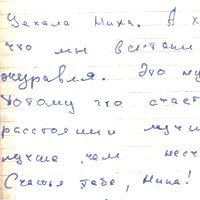 Уехала Нина. А х
что мы встали
журавля. Это лу
Потому что счаст
расстоянии лучш
лучше, чем несч
Счастья тебе, Нина!